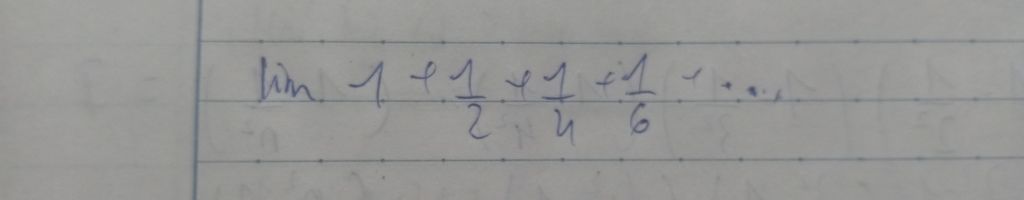 lim 1 + 1/2 + 1/4 + 1/6 + ...